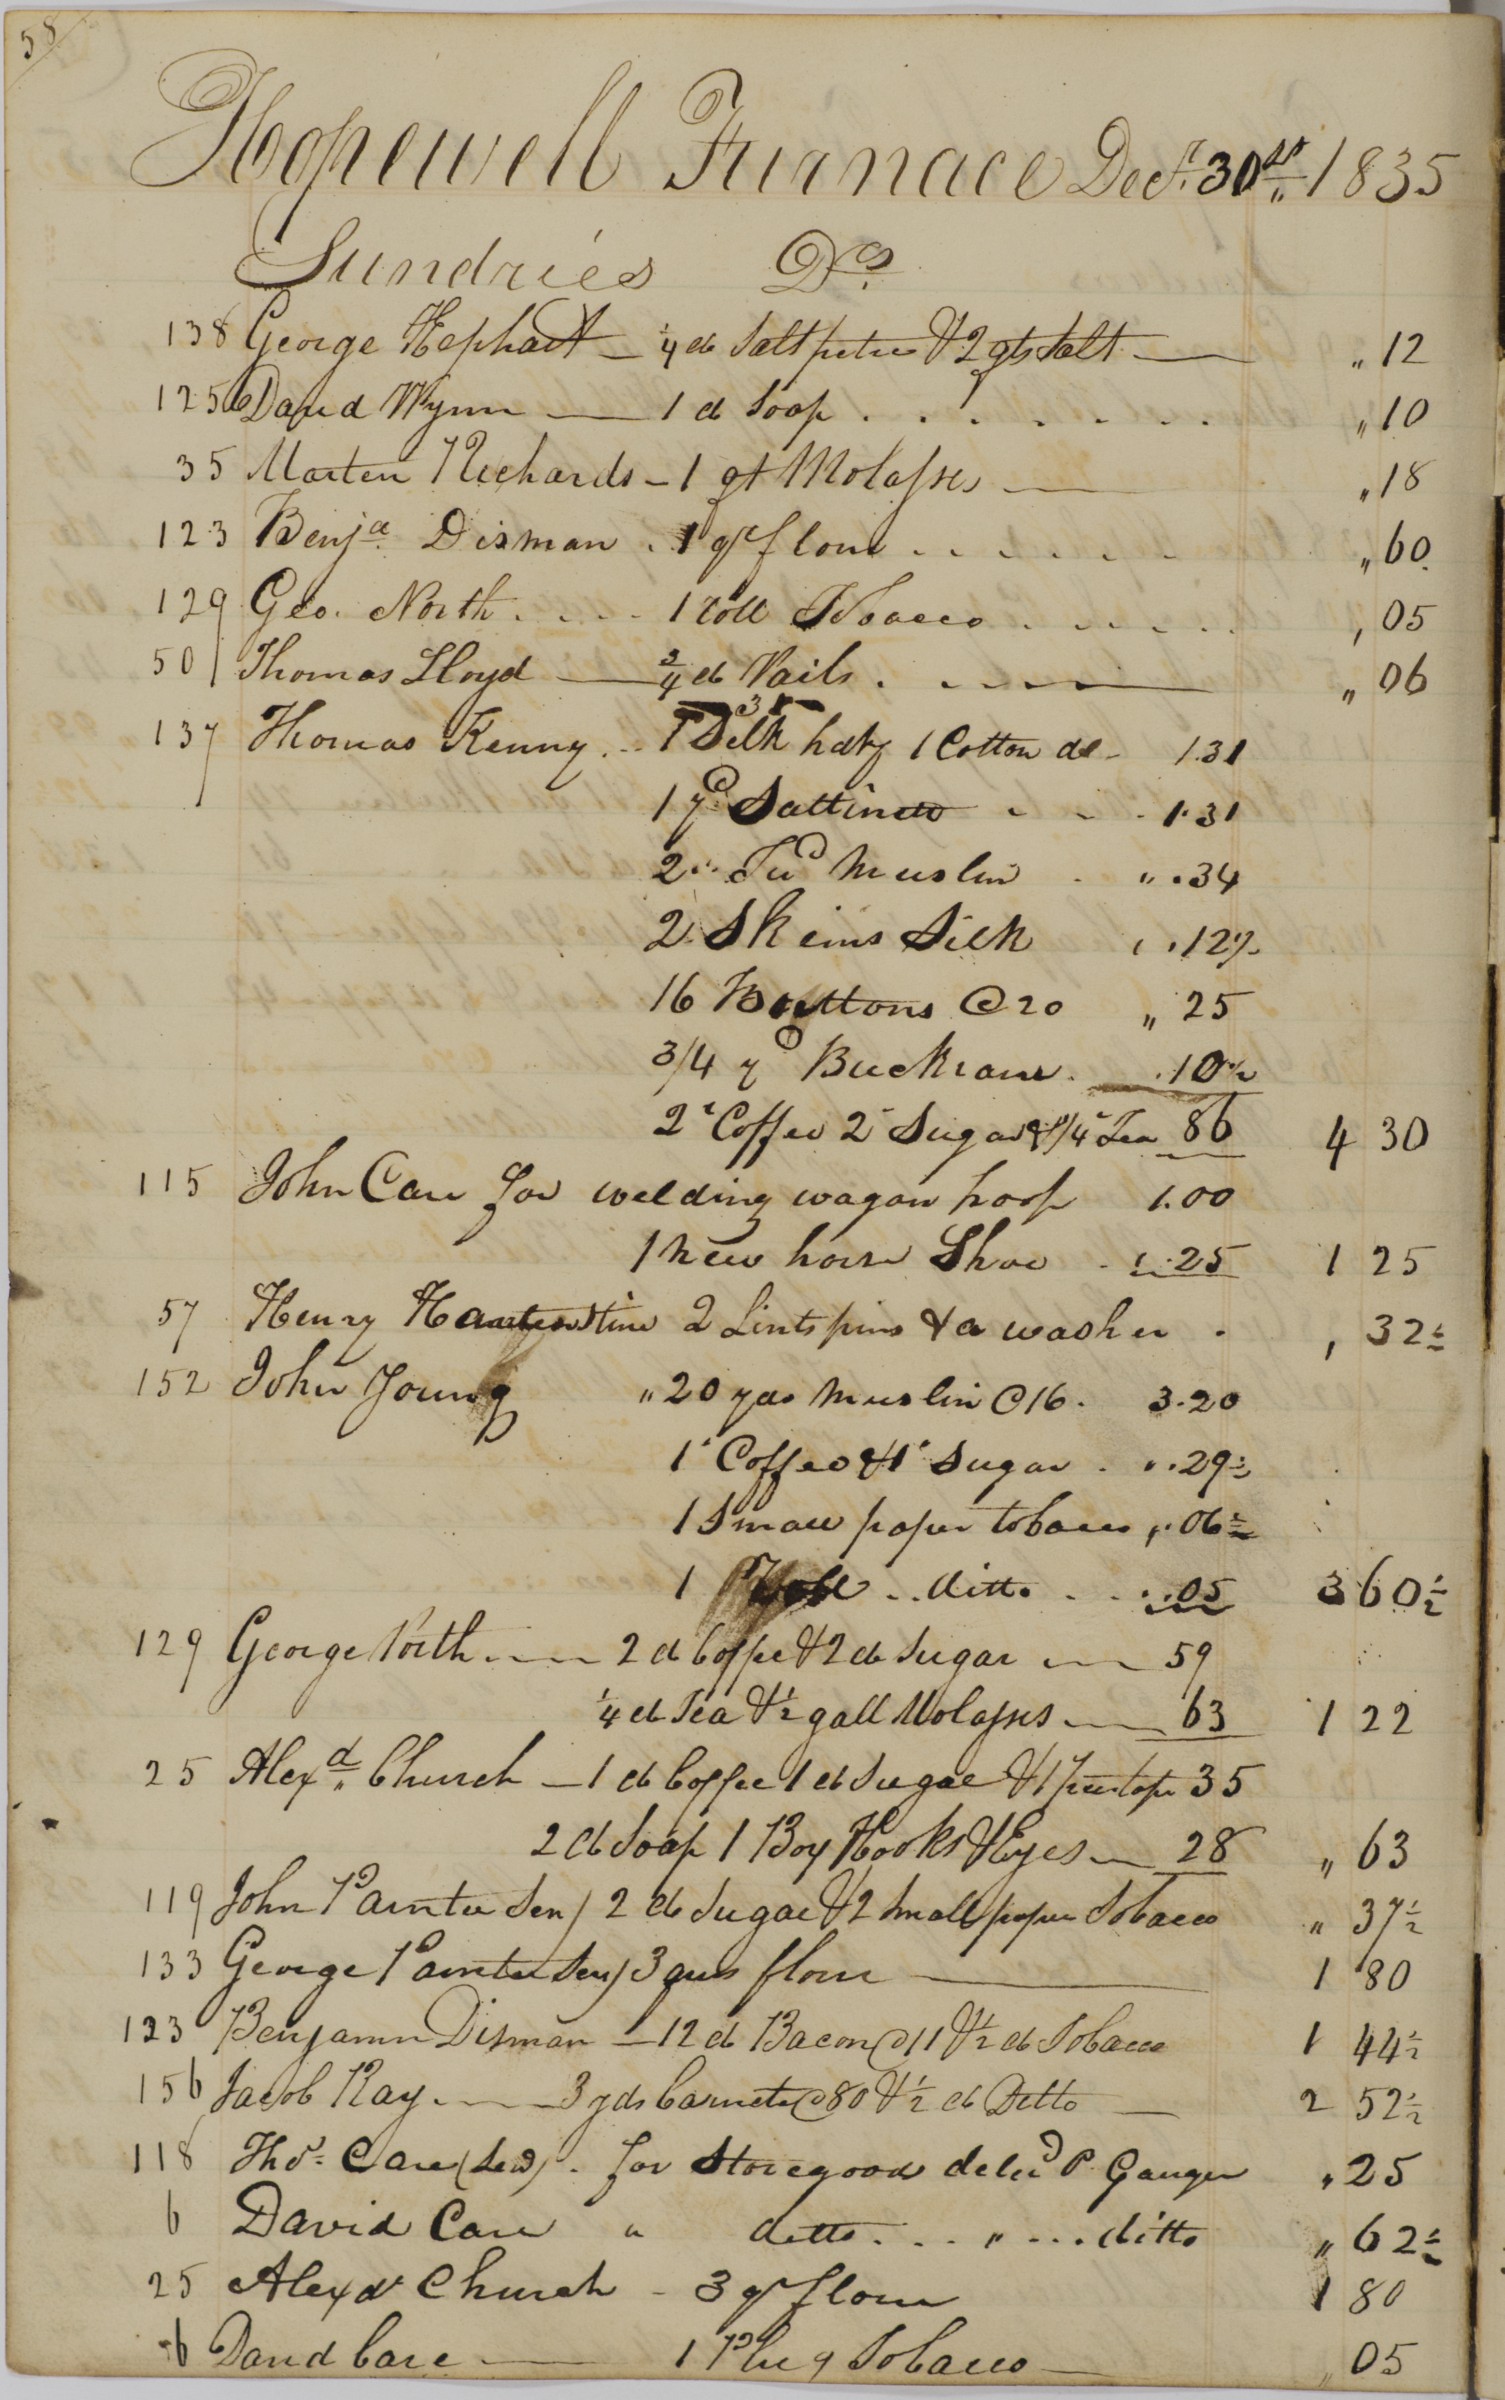 58
Hopewell Furnace Decr. 30th 1835
Sundries Drs.
138 George Hephart — 1/4 lb Saltpetre & 2 qts Salt — " 12
125 David Wynn — 1 lb Soap . . . . . . . " 10
35 Marten Richards — 1 qt Molasses — " 18
123 Benja. Disman . 1 qr flour . . . . . . " 60
129 Geo. North . . . . 1 roll Tobacco . . . . . , 05
50 Thomas Lloyd — 3/4 lb Nails . — " 06
137 Thomas Kenny . . 1 Silk hdkf 1 Cotton do — 1.31
1 yd Sattinett . . . 1.31
2 " Do Muslin . " .34
2 Skeins Silk " .12 1/2
16 Buttons @ 20 " 25
3/4 yd Buckram . .10 1/2
2 " Coffee 2 " Sugar & 1/4 " Tea 86 4 30
115 John Care for welding wagon hoop 1.00
1 new horse Shoe . " .25 1 25
57 Henry Hauterstine 2 Lintspins & a washer . , 32 1/2
152 John Young " 20 yds Muslin @ 16 . 3.20
1 " Coffee & 1 " Sugar . " .29 1/2
1 Small paper tobacco " .06 1/2
1 Roll . . ditto . . . .05 3 60 1/2
129 George North . — 2 lb Coffee & 2 lb Sugar — 59
1/4 lb Tea & 1/2 gall Molasses — 63 1 22
25 Alexd. Church — 1 lb Coffee 1 lb Sugar & 1 35
2 lb Soap 1 Box Hooks & Eyes — 28 " 63
119 John Painter Senr 2 lb Sugar & 2 Small paper Tobacco " 37 1/2
133 George Painter Senr 3 qrs flour — 1 80
123 Benjamin Disman — 12 lb Bacon @ 11 & 1/2 lb Tobacco 1 44 1/2
156 Jacob Kay . — 3 yds Carnete @ 80 & 1/2 lb Ditto — 2 52 1/2
118 Thos. Care (Senr) . for Storegoods deled P. Ganger " 25
6 David Care " ditto . . . " . . . ditto " 62 1/2
25 Alexdr Church - 3 qr flour 1 80
6 David Care — 1 Plug Tobacco — " 05